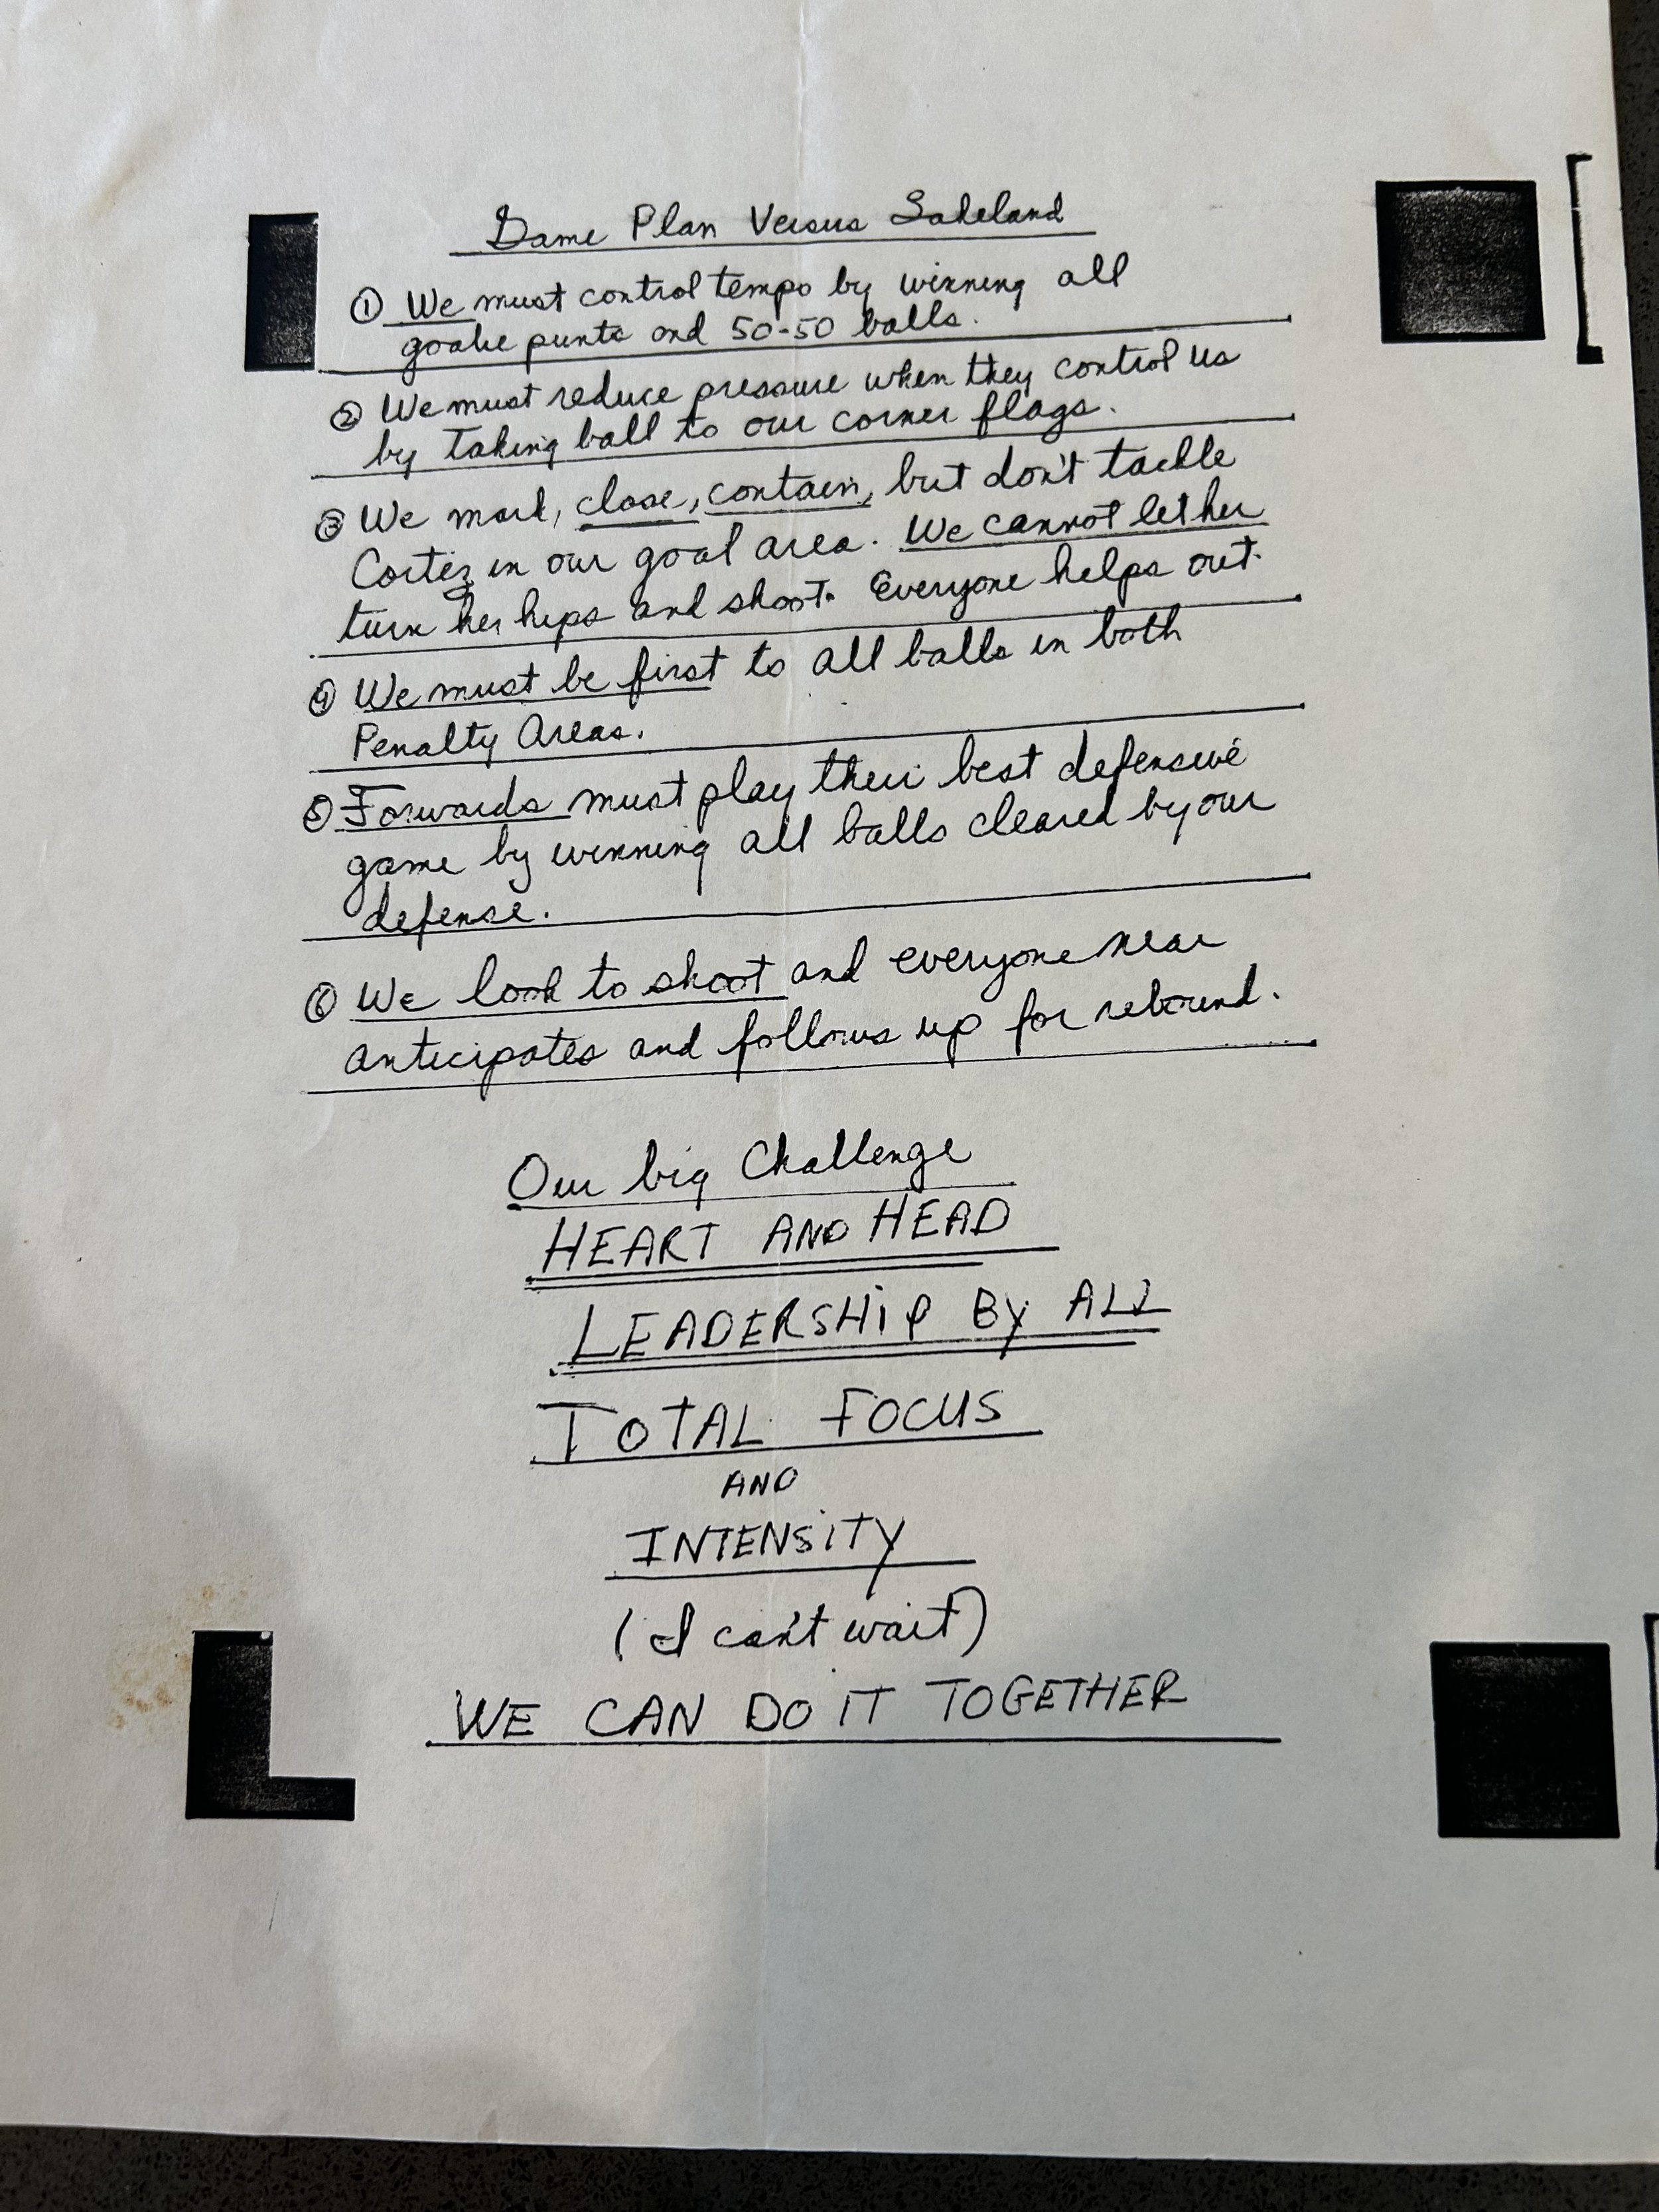 Game Plan Versus Lakeland
① We must control tempo by winning all
goalie punts and 50-50 balls.
② We must reduce pressure when they control us
by taking ball to our corner flags.
③ We mark, close, contain, but don't tackle
Cortez in our goal area. We cannot let her
turn her hips and shoot. Everyone helps out.
④ We must be first to all balls in both
Penalty Areas.
⑤ Forwards must play their best defensive
game by winning all balls cleared by our
defense.
⑥ We look to shoot and everyone near
anticipates and follows up for rebound.
Our big Challenge
HEART AND HEAD
LEADERSHIP BY ALL
TOTAL FOCUS
AND
INTENSITY
(I can't wait)
WE CAN DO IT TOGETHER